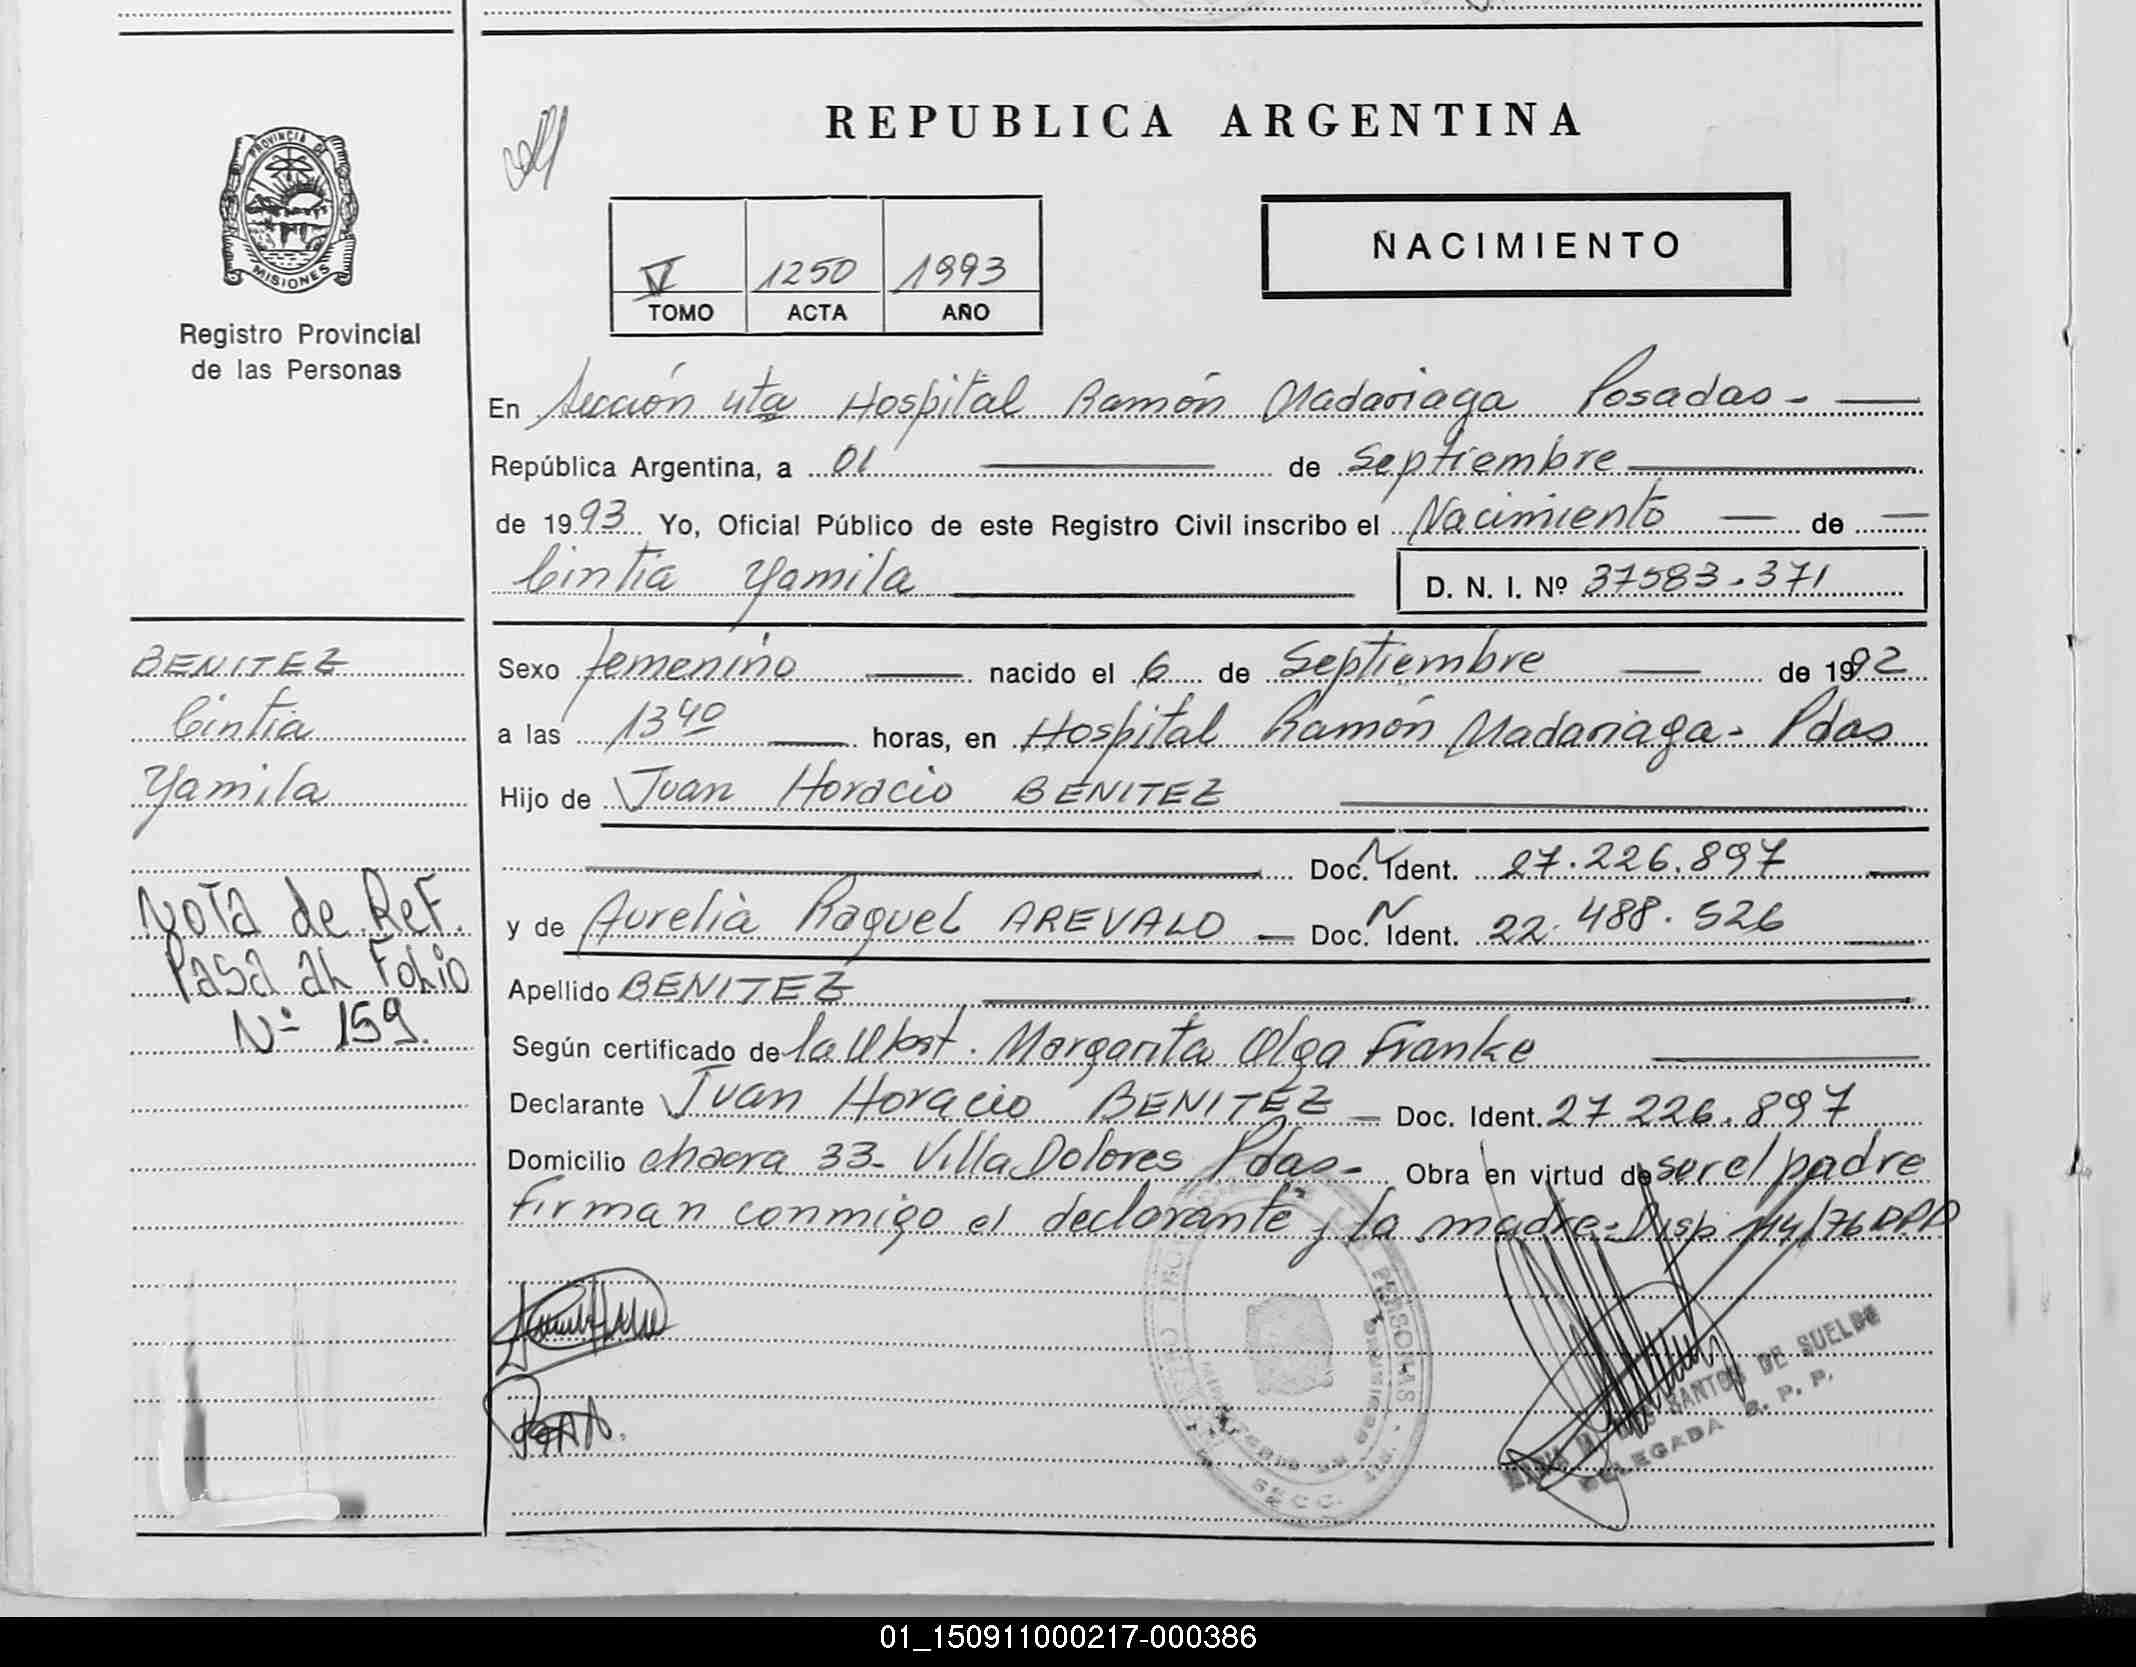 REPUBLICA ARGENTINA
PROVINCIA DE
MISIONES
Registro Provincial
de las Personas
VI 1250 1993
TOMO ACTA AÑO
NACIMIENTO
En Sección 4ta Hospital Ramón Madariaga Posadas -
República Argentina, a 01 de Septiembre
de 1993 Yo, Oficial Público de este Registro Civil inscribo el Nacimiento de
Cintia Yamila D. N. I. Nº 37583.371
Sexo femenino nacido el 6 de Septiembre de 1992
a las 13 40 horas, en Hospital Ramón Madariaga - Pdas
Hijo de Juan Horacio BENITEZ
Doc. N Ident. 27.226.897
y de Aurelia Raquel AREVALO - Doc. N Ident. 22.488.526
Apellido BENITEZ
Según certificado de la Obst. Margarita Olga Franke
Declarante Juan Horacio BENITEZ - Doc. Ident. 27 226.897
Domicilio chacra 33- Villa Dolores Pdas- Obra en virtud de ser el padre
firman conmigo el declarante y la madre = Disp 114/76 DPP
BENITEZ
Cintia
Yamila
Nota de Ref.
Pasa al Folio
Nº 159.
SANTOS DE SUELDO
DELEGADA R. P. P.
01_150911000217-000386